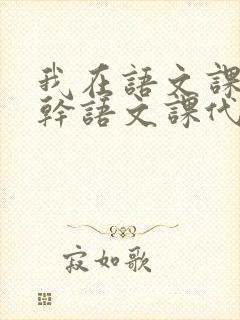 我在語文課
幹語文課代
寂如歌